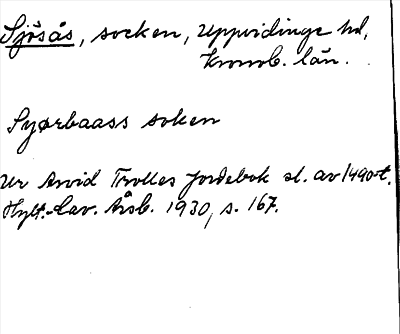 Sjösås, socken, Uppvidinge hd,
Kronob. län.
Syørbaass soken
Ur Arvid Trolles jordebok sl. av 1490-t.
Hylt.-Cav. Årsb. 1930, s. 167.